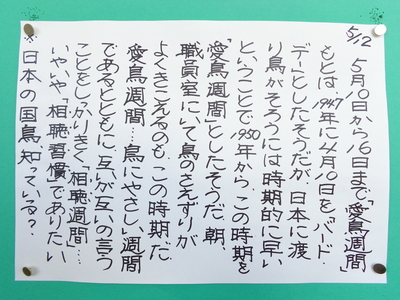 5/12
5月10日から16日まで「愛鳥週間」
もとは、1947年に4月10日を「バード・
デー」としたそうだが、日本に渡
り鳥がそろうには時期的に早い
ということで、1950年から、この時期を
「愛鳥週間」としたそうだ。朝、
職員室にいて鳥のさえずりが
よくきこえるのも、この時期だ。
愛鳥週間…鳥にやさしい週間
であるとともに、互いが互いの言う
ことをしっかりきく「相聴週間」…
いやいや「相聴習慣」でありたい
※日本の国鳥知っている？